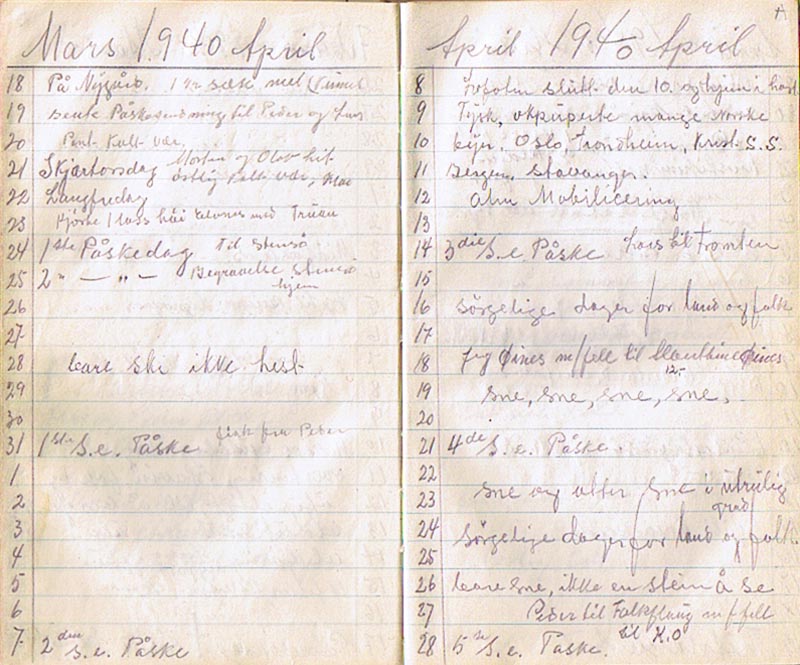 Mars 1940 April
18 På Nygård. 1 sæk mel
19 sente Påskesending til Peder og
20 Pent Kalt vær.
21 Skjærtorsdag Morten og Olov hit
østlig Kalt vær,
22 Langfredag
23 Kjørte 1 lass håi med
24 1ste Påskedag Til
25 2 " — " — Begravelse
hjem
26
27
28 bare ski ikke hest
29
30
31 1ste S. e. Påske fra Peder
1
2
3
4
5
6
7 2den S. e. Påske
April 1940 April
8 slutt den 10. og hjem i hast
9 Tysk, okuperte mange Norske
10 byer. Oslo, Trondheim, Krist. S. S.
11 Bergen, Stavanger.
12 Alm Mobilicering
13
14 3die S. e. Påske Lars til Fronten
15
16 sørgelige dager for land og folk
17
18 Jeg Øines m/fell til Øines
12,-
19 sne, sne, sne, sne,
20
21 4de S. e. Påske.
22
sne og atter sne i utrulig
23 grad
24 sørgelige dager for land og folk.
25
26 bare sne, ikke en stein å se
27 Peder til m/fell
28 5te S. e. Påske til